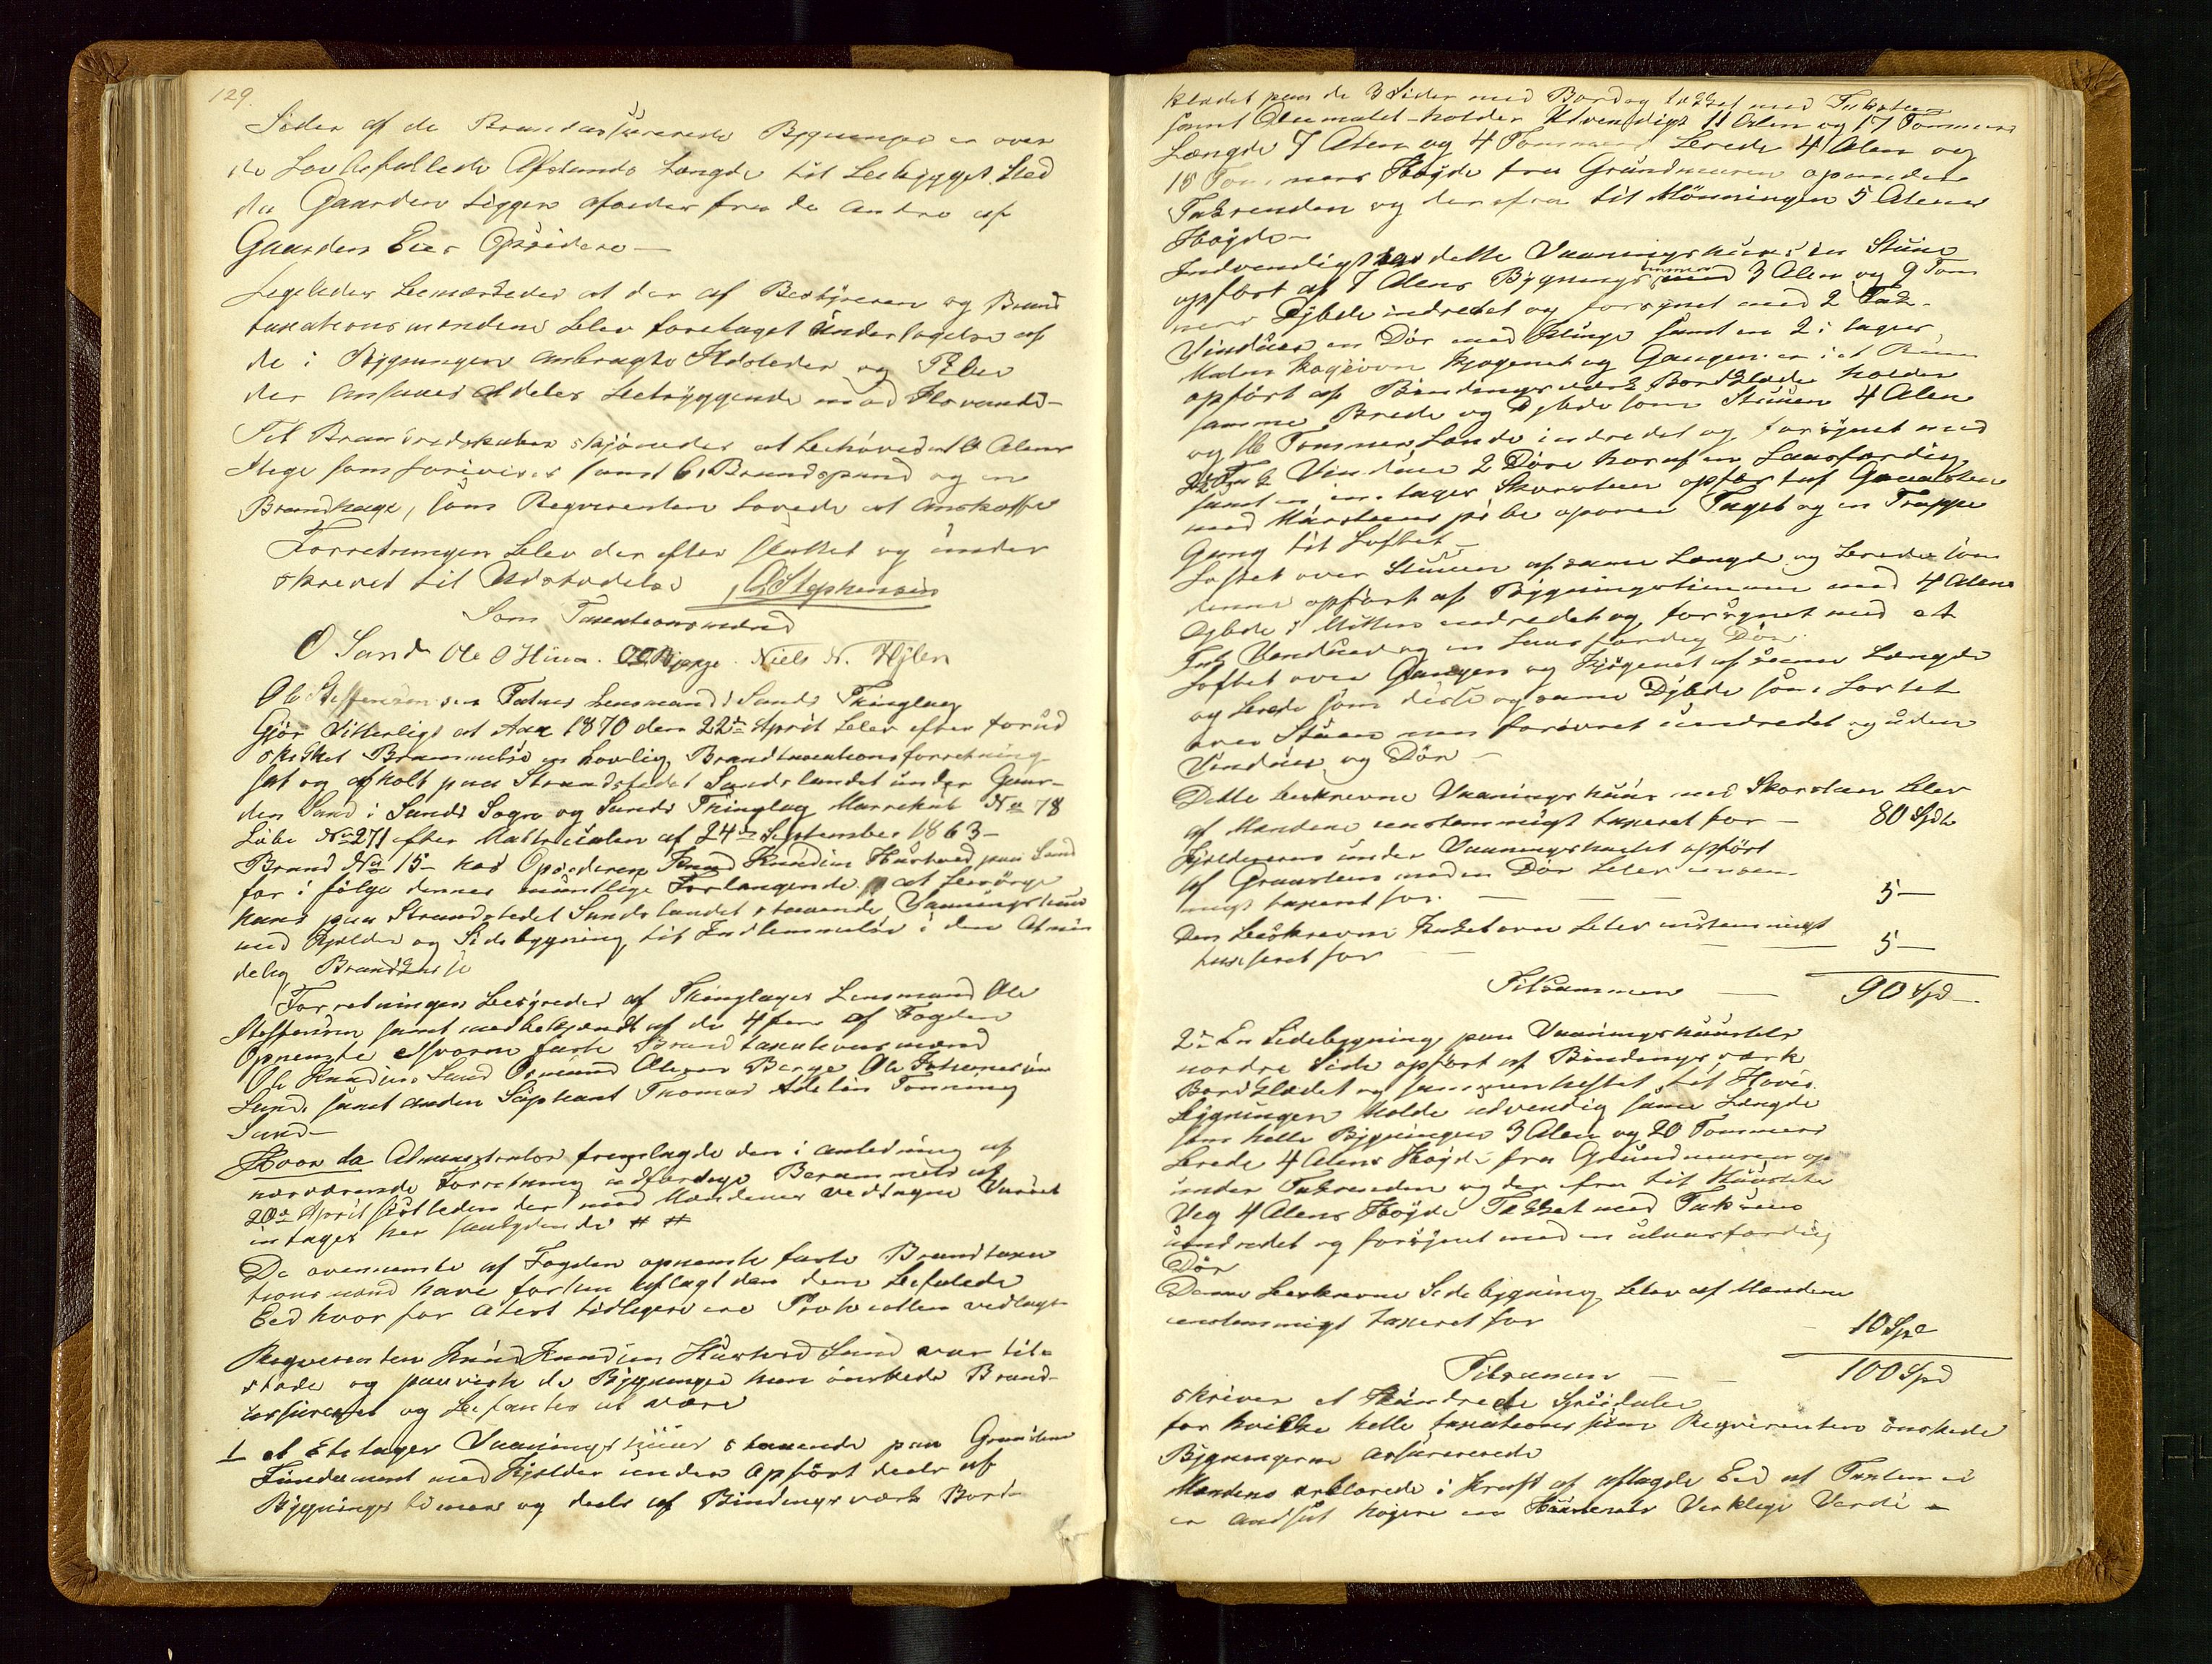 129.
Sider af de Brandassurerede Bygninger er over
de Lovbefallede Afstands Længde til Bebygget Sted
da Gaarden Ligger afsides fra de Andre af
Gaarden Eier Opsidere —
Ligeledes bemærkedes at der af Bestyreren og Brand
taxationsmændene blev foretaget Undersøgelse af
de i Bygningen anbragte Ildsteder og Piber
der ansaaes aldeles betryggende mod Ilsvaade —
Til Brandredskaber skjønnedes at behøvedes Alens
Stige som forevises samt 6 Brandspand og en
Brandhage, som Reqvirenten Lovede at Anskaffe
Forretningen blev der efter sluttet og under
skrevet til Udstædelse O. Stephensen
Som Taxationsmænd
O Sand Ole O Hiim. Niels N. Hylen
Ole Steffensen Lensmand i Sands Thinglag
Gjør Vitterligt at Aar 1870 den 22de April blev efter forud
skikket Berammelse en Lovlig Brandtaxationsforretning
sat og afholt paa Strandstedet Sandslandet under Gaar-
den Sand i Sands Sogn og Sands Thinglag Matrekul No 78
Løbe No 271 efter Mattriculen af 24de September 1863 —
Brand No 15 — hos Opsidderen Knud Knudsen Hustved paa Sand
for i følge dennes mündtlige Forlangende at besørge
hans paa Strandstedet Sandslandet staaende Vaaningshuus
med Kjelder og Sidebygning til Indlemmelse i den Almin
delig Brandkasse
Forretningen bestyredes af Thinglagets Lensmand Ole
Steffensen samt medbetjendt af de 4 fem af Fogden
Oppenævnte edsvorne faste Brandtaxationsmænd
Ole Knudsen Sand Osmund Olesen Berge Ole Johannesen
Sand samt anden Suplеant Thomas Adelsten Tonning
Sand —
Hvor da Administrator fremlagde den i anledning af
nærværende Forretning udfærdige Berammelse af
20de April sistleden der med Mændenes vedtagne Varsel
indtages her saalydende # #
De ovennævnte af Fogden opnævnte faste Brandtaxa
tionsmænd have forhen aflagt den dem befalede
Eed hvor for Atest tidligere ere Protocollen vedlagt
Reqvirenten Knud Knudsen Hustved Sand var til-
stæde og paaviste de Bygninger han ønskede Brand-
assureret og befantes at være
1 et Etetages Vaaningshuus staaende paa Graasteens
Fundament med Kjelder under Opført deels af
Bygningstimmer og deels af Bindingsværk Bord-
klædet paa de 3 Sider med Bord og Tækket med Taksteen
samt Oliemalet — holder Udvendigt 11 Alen og 17 Tommers
Længde 7 Alen og 4 Tommers Brede 4 Alen og
15 Tommers Høyde fra Grundmuren op under
Takrenden og derefra til Mønningen 5 Alens
Høyde —
Indvendigt har dette Vaaningshuus en Stue
opført af 7 Alens Bygningstimmer med 3 Alen og 9 Tom
mers Dybde indredet og forsynet med 2 Fag
Vinduer en Dør med Klinge samt en 2 i tages
Malm Kogeovn Kjøgenet og Gangen er i et Rum
opført af Bindingsværk Bordklæde holder
samme Brede og Dybde som Stuen 4 Alen
og 16 Tommer Lænde indredet og forsynet med
2 Fag Vinduer 2 Døre hvoraf en Laasfærdig
samt en i en tages Skorsteen opført af Graasten
med Mursteens pibe oponer Taget og en Trappe
Gang til Loftet —
Loftet over Stuen af samme Længde og Brede som
denne opført af Bygningstimmer med 4 Alens
Dybde i Mitten indredet og forsynet med et
Fag Vinduer og en Laasfærdig Dør
Loftet over Gangen og Kjøgenet af samme Længde
og Brede som disse og samme Dybde som Loftet
over Stuen men forøvret uindredet og uden
Vinduer og Dør —
Dette beskrevne Vaaningshuus med Skorsteen blev
af Mændene enstemmigt taxeret for — 80 Spdl
Kjelderen under Vaaningshuset opført
af Graasteen med en Dør blev enstem-
migt taxeret for — 5 —
Den beskrevne Kakelovn blev enstemmigt
taxseret for — 5 —
Tilsammen — 90 Spd —
2de En Sidebygning paa Vaaningshuusets
nordre Side opført af Bindingsværk
Bordklædet og sammenheftet til Hoved
bygningen holde udvendig samme Længde
som hele Bygningen 3 Alen og 20 Tommers
Brede 4 Alens Høyde fra Grundmuren op
under Takrenden og der fra til Huusets
Veg 4 Alens Høyde Tækket med Taksteen
uindredet og forsynet med en ulaasfærdig
Dør
Denne beskrevne Sidebygning blev af Mændene
enstemmigt taxeret for 10 Spd
Tilsamen — 100 Spd
skriver et Hundrede Speisdaler
for hvilke helle taxationssum Reqvirenten ønskede
Bygningerne assurerede
Mændene erklærede i kraft af aflagde Eed at Taxten ei
er andsat højere en Husenes Verklige Verdi —